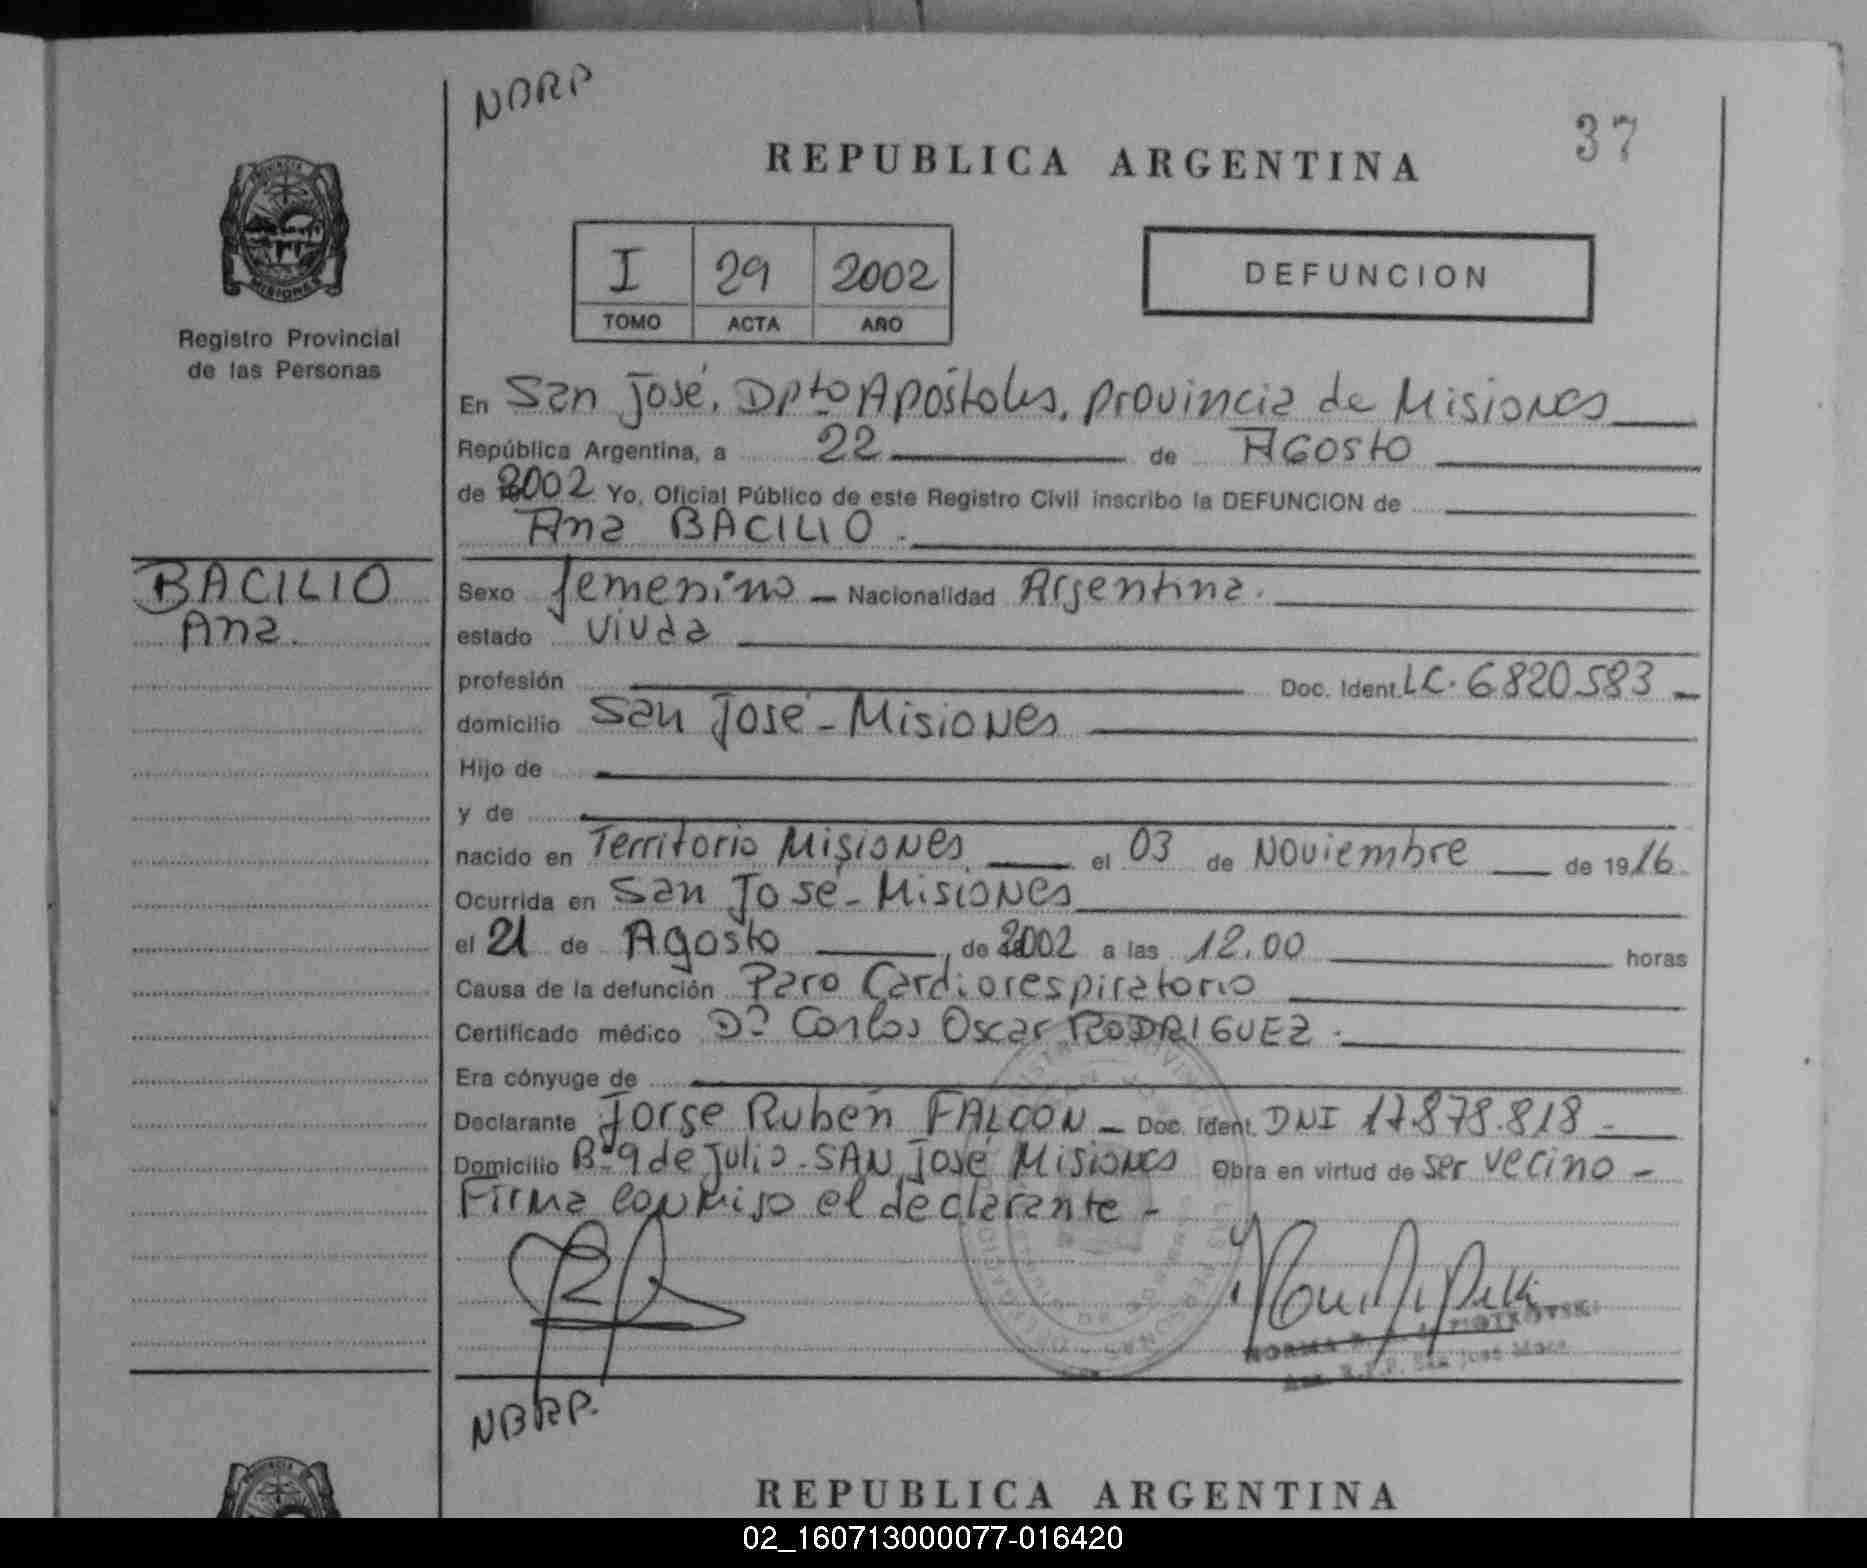 NBRP
37
REPUBLICA ARGENTINA
PROVINCIA
MISIONES
Registro Provincial
de las Personas
I 29 2002
TOMO ACTA AÑO
DEFUNCION
En San José, Dpto Apóstoles, provincia de Misiones
República Argentina, a 22 de Agosto
de 2002 Yo, Oficial Público de este Registro Civil inscribo la DEFUNCION de
Ana BACILIO.
BACILIO
Ana.
Sexo femenino - Nacionalidad Argentina.
estado viuda
profesión Doc. Ident. LC. 6820583
domicilio San José - Misiones
Hijo de
y de
nacido en Territorio Misiones el 03 de Noviembre de 1916
Ocurrida en San José - Misiones
el 21 de Agosto, de 2002 a las 12.00 horas
Causa de la defunción Paro Cardiorespiratorio
Certificado médico Dr Carlos Oscar RODRIGUEZ.
Era cónyuge de
Declarante Jorge Rubén FALCON - Doc. Ident. DNI 17.878.818 -
Domicilio Bº 9 de Julio - SAN José Misiones Obra en virtud de ser vecino -
Firma conmigo el declarante -
NORMA PIOTROVSKI
R.P.P. San José Mnes.
NBRP.
PROVINCIA
REPUBLICA ARGENTINA
02_160713000077-016420